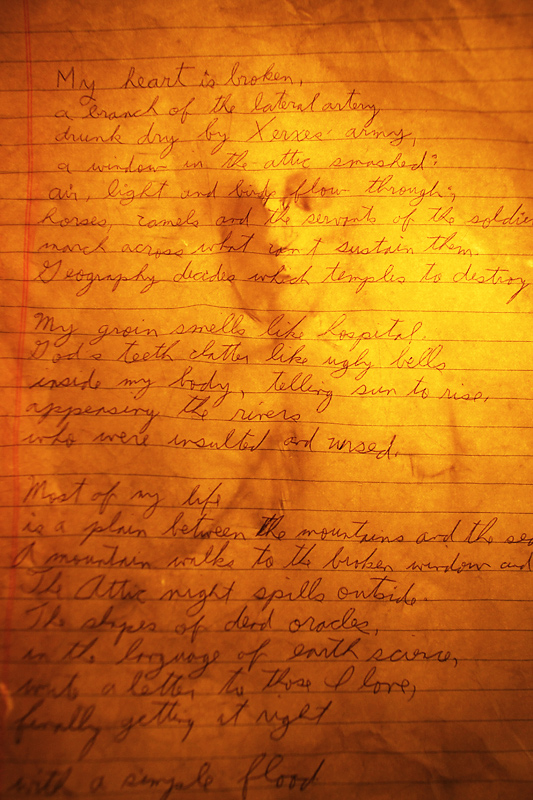 My heart is broken,
a branch of the lateral artery
drunk dry by Xerxes' army,
a window in the attic smashed:
air, light and birds flow through;
horses, camels and the servants of the soldie
march across what can't sustain them.
Geography decides which temples to destroy
My groin smells like hospital.
God's teeth clatter like ugly bells
inside my body, telling sun to rise,
appeasing the rivers
who were insulted and
Most of my life
is a plain between the mountains and the sea
A mountain walks to the broken window and
The Attic night spills outside.
The shapes of dead oracles,
in the language of earth science,
write a letter to those I love,
finally getting it right
with a simple flood